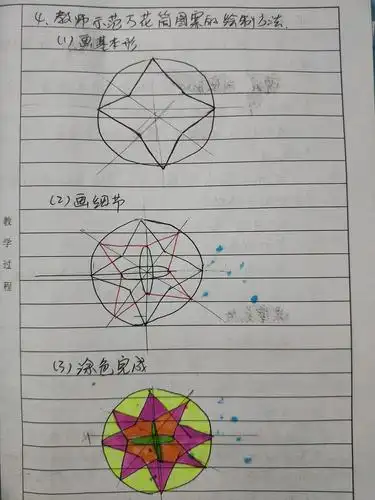 4、教师示范万花筒图案的绘制方法.
(1)画基本形
(2)画细节
教学过程
(3)涂色完成